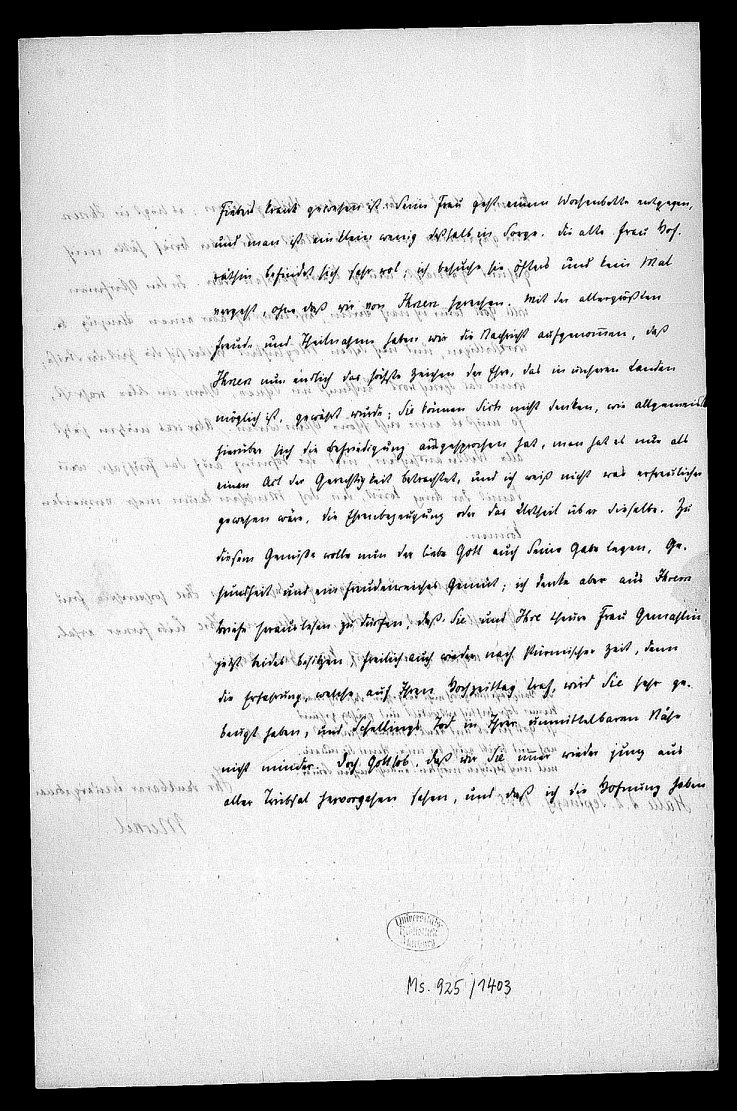 Fieber krank gewesen ist. Seine Frau geht einem Wochenbette entgegen,
und man ist ein klein wenig deßhalb in Sorge. Die alte Frau Hof-
räthin befindet sich sehr wol, ich besuche sie öfters und kein Mal
vergeht, ohne daß wir von Ihnen sprechen. Mit der allergrößten
Freude und Theilnahme haben wir die Nachricht aufgenommen, daß
Ihnen nun endlich das höchste Zeichen der Ehre, das in unseren Landen
möglich ist, gewährt wurde; Sie können Sich nicht denken, wie allgemein
hierüber sich die Befriedigung ausgesprochen hat, man hat es nur als
einen Act der Gerechtigkeit betrachtet, und ich weiß nicht was erfreulicher
gewesen wäre, die Ehrenbezeugung oder das Urtheil über dieselbe. Zu
diesem Genuße wolle nun der liebe Gott auch Seine Gabe legen, Ge-
sundheit und ein freudenreiches Gemüt; ich denke aber aus Ihrem
Briefe herauslesen zu dürfen, daß Sie und Ihre theure Frau Gemahlin
jetzt beides besitzen, freilich auch wieder nach stürmischer Zeit, denn
die Erfahrung, welche auf Ihren Hochzeittag traf, wird Sie sehr ge-
beugt haben, und Schellings Tod in Ihrer unmittelbaren Nähe
nicht minder. Doch Gottlob, daß wir Sie immer wieder jung aus
aller Trübsal hervorgehen sehen, und daß ich die Hofnung haben
Universitäts
Bibliothek
Marburg
Ms. 925/1403